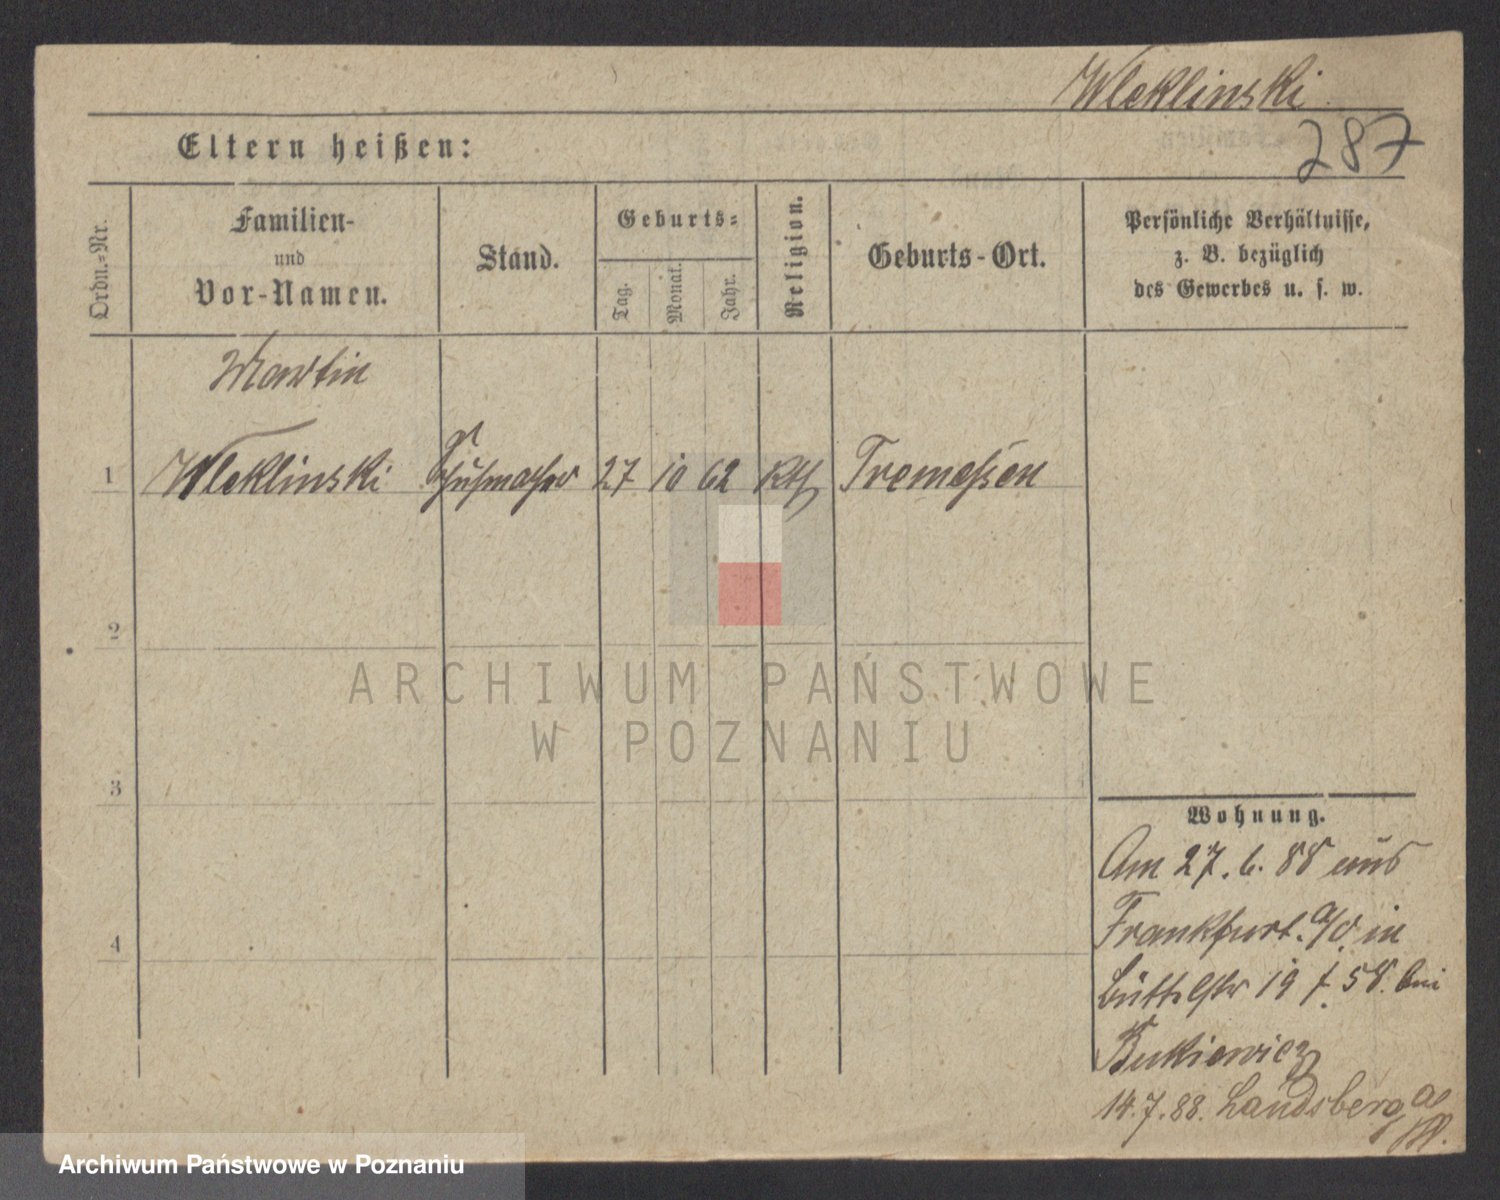 Wleklinski
287
Eltern heißen:
Ordn.-Nr.
Familien-
und
Vor-Namen.
Stand.
Geburts-
Tag.
Monat.
Jahr.
Religion.
Geburts-Ort.
Persönliche Verhältnisse,
z. B. bezüglich
des Gewerbes u. s. w.
Martin
1 Wleklinski Schuhmacher 27 10 62 Kth Tremessen
2
3
4
ARCHIWUM PAŃSTWOWE
W POZNANIU
Wohnung.
Am 27. 6. 88 aus
Frankfurt a/O in
Büttelstr 19 f. 58. bei
Bukiewicz
14.7.88. Landsberg a/W.
Archiwum Państwowe w Poznaniu